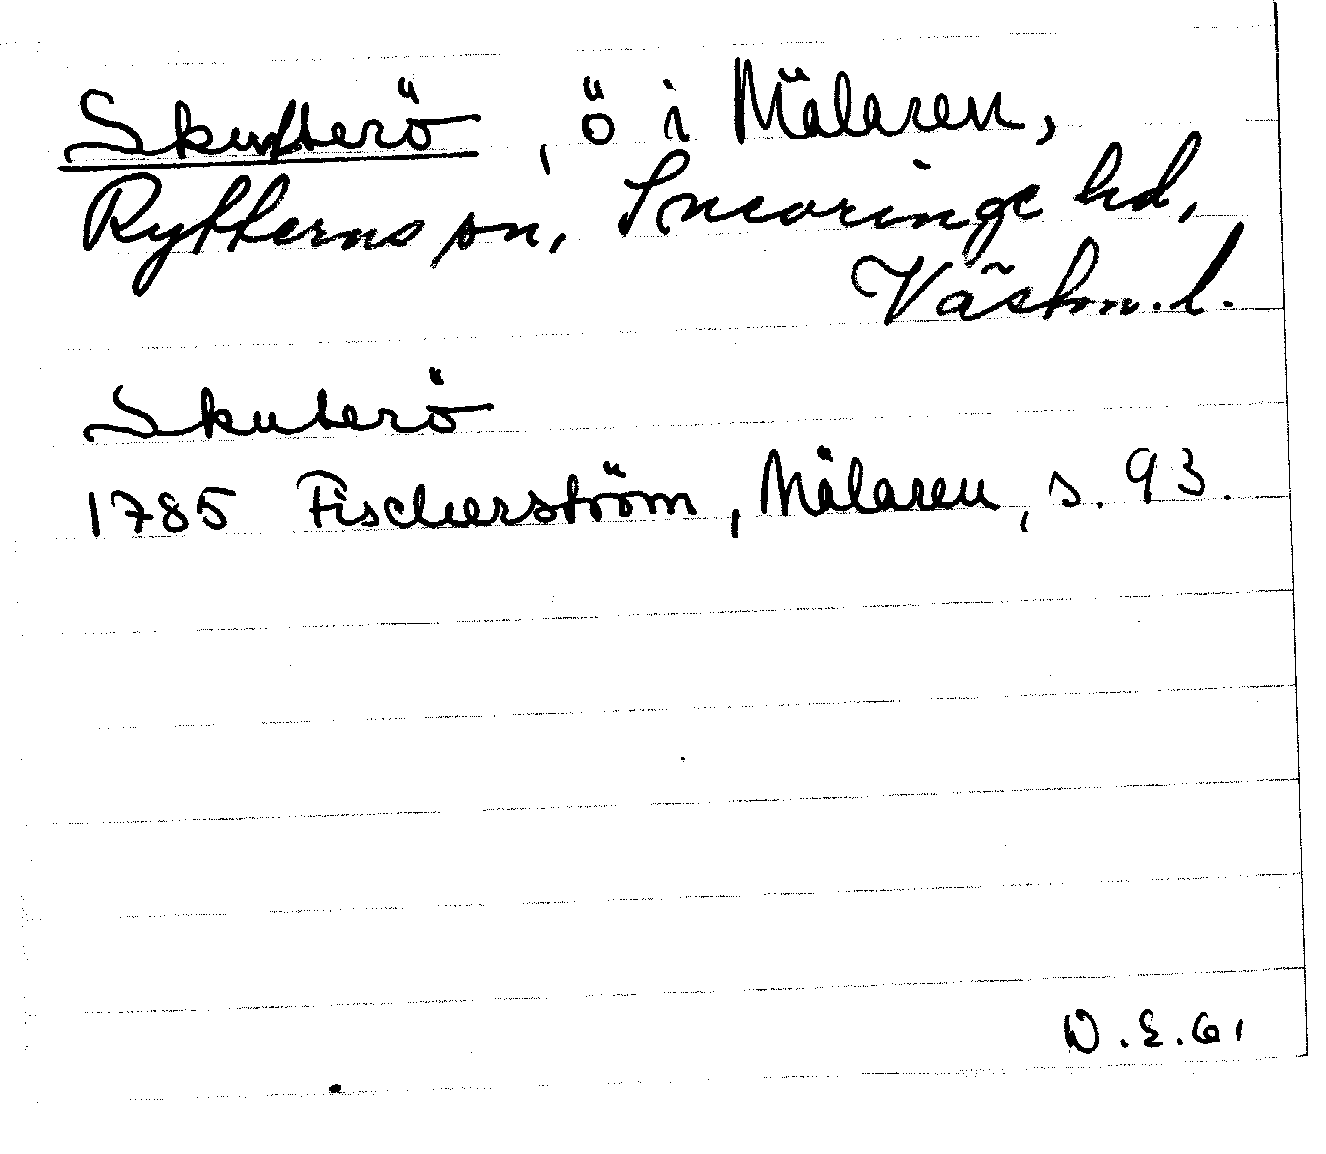 Skutterö, ö i Mälaren,
Rytterns sn, Snevringe hd,
Västm. l.
Skuterö
1785 Fischerström, Mälaren, s. 93.
D. E. 61